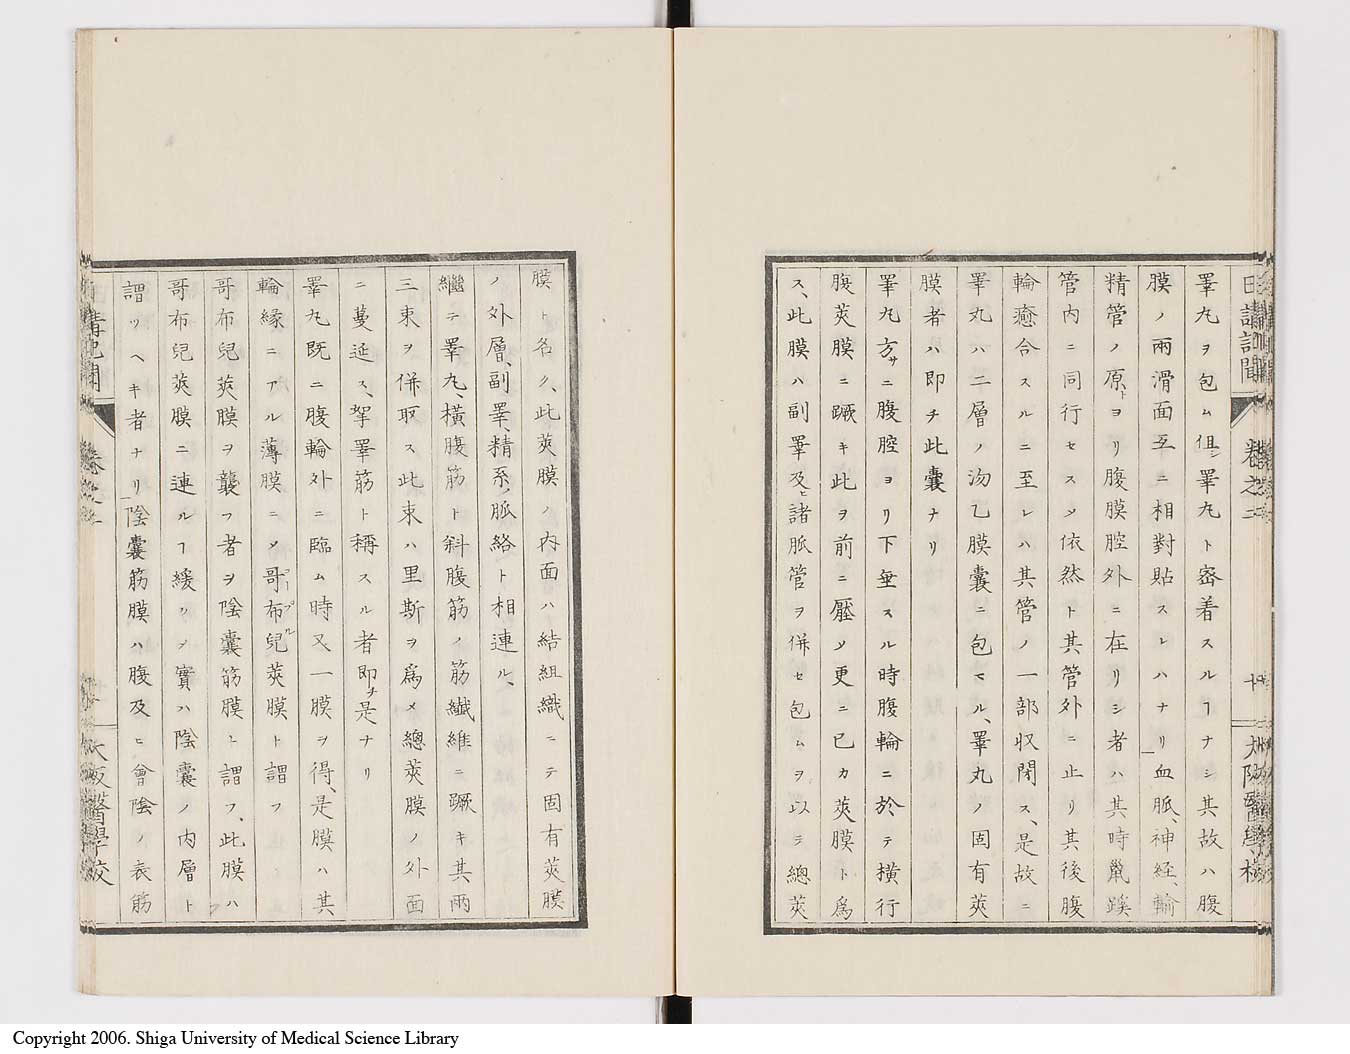 睪丸ヲ包ム俱シ睪丸ト密着スルヿナシ其故ハ腹
膜ノ兩滑面互ニ相對貼スレハナリ血脈、神経、輸
精管ノ原トヨリ腹膜腔外ニ在リシ者ハ其時鼠蹊
管内ニ同行セスシテ依然ト其管外ニ止リ其後腹
輪癒合スルニ至レハ其管ノ一部収閉ス、是故ニ
睪丸ハ二層ノ沕乙膜囊ニ包マル、睪丸ノ固有莢
膜者ハ即チ此囊ナリ
睪丸方サニ腹腔ヨリ下垂スル時腹輪ニ於テ横行
腹莢膜ニ蹶キ此ヲ前ニ壓シ更ニ已カ莢膜ト爲
ス、此膜ハ副睪及ヒ諸脈管ヲ併セ包ムヲ以テ總莢
卷之二
十
大阪醫學校
膜ト名ク、此莢膜ノ内面ハ結組織ニテ固有莢膜
ノ外層、副睪、精系ノ脈絡ト相連ル、
繼テ睪丸、横腹筋ト斜腹筋ノ筋纎維ニ蹶キ其兩
三束ヲ併取ス此束ハ里斯ヲ爲メ總莢膜ノ外面
ニ蔓延ス、挙睪筋ト稱スル者即チ是ナリ
睪丸既ニ腹輪外ニ臨ム時又一膜ヲ得、是膜ハ其
輪縁ニアル薄膜ニシテ哥布兒コープル莢膜ト謂フ
哥布兒莢膜ヲ襲フ者ヲ陰囊筋膜ト謂フ、此膜ハ
哥布兒莢膜ニ連ルヿ緩クシテ實ハ陰囊ノ内層ト
謂ツヘキ者ナリ陰囊筋膜ハ腹及ヒ會陰ノ表筋
大阪醫學校
Copyright 2006. Shiga University of Medical Science Library